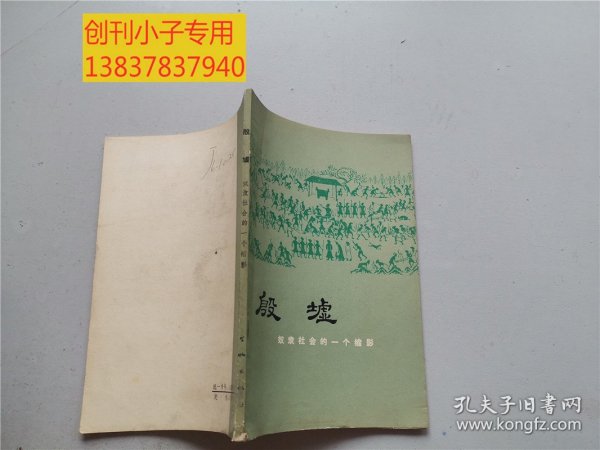 创刊小子专用
13837837940
殷墟
奴隶社会的一个缩影
殷墟
奴隶社会的一个缩影
孔夫子旧书网
www.kongfz.com